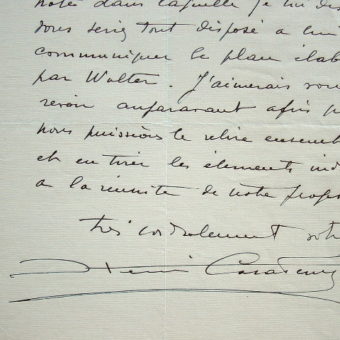 note dans laquelle je lui dis
vous seriez tout disposé à lui
communiquer le plan élab
par Walter. J'aimerais vous
revoir auparavant afin q
nous puissions le relire ensemb
et en tirer les éléments ind
à la réussite de notre proje
très cordialement votr
Henri Casadesus